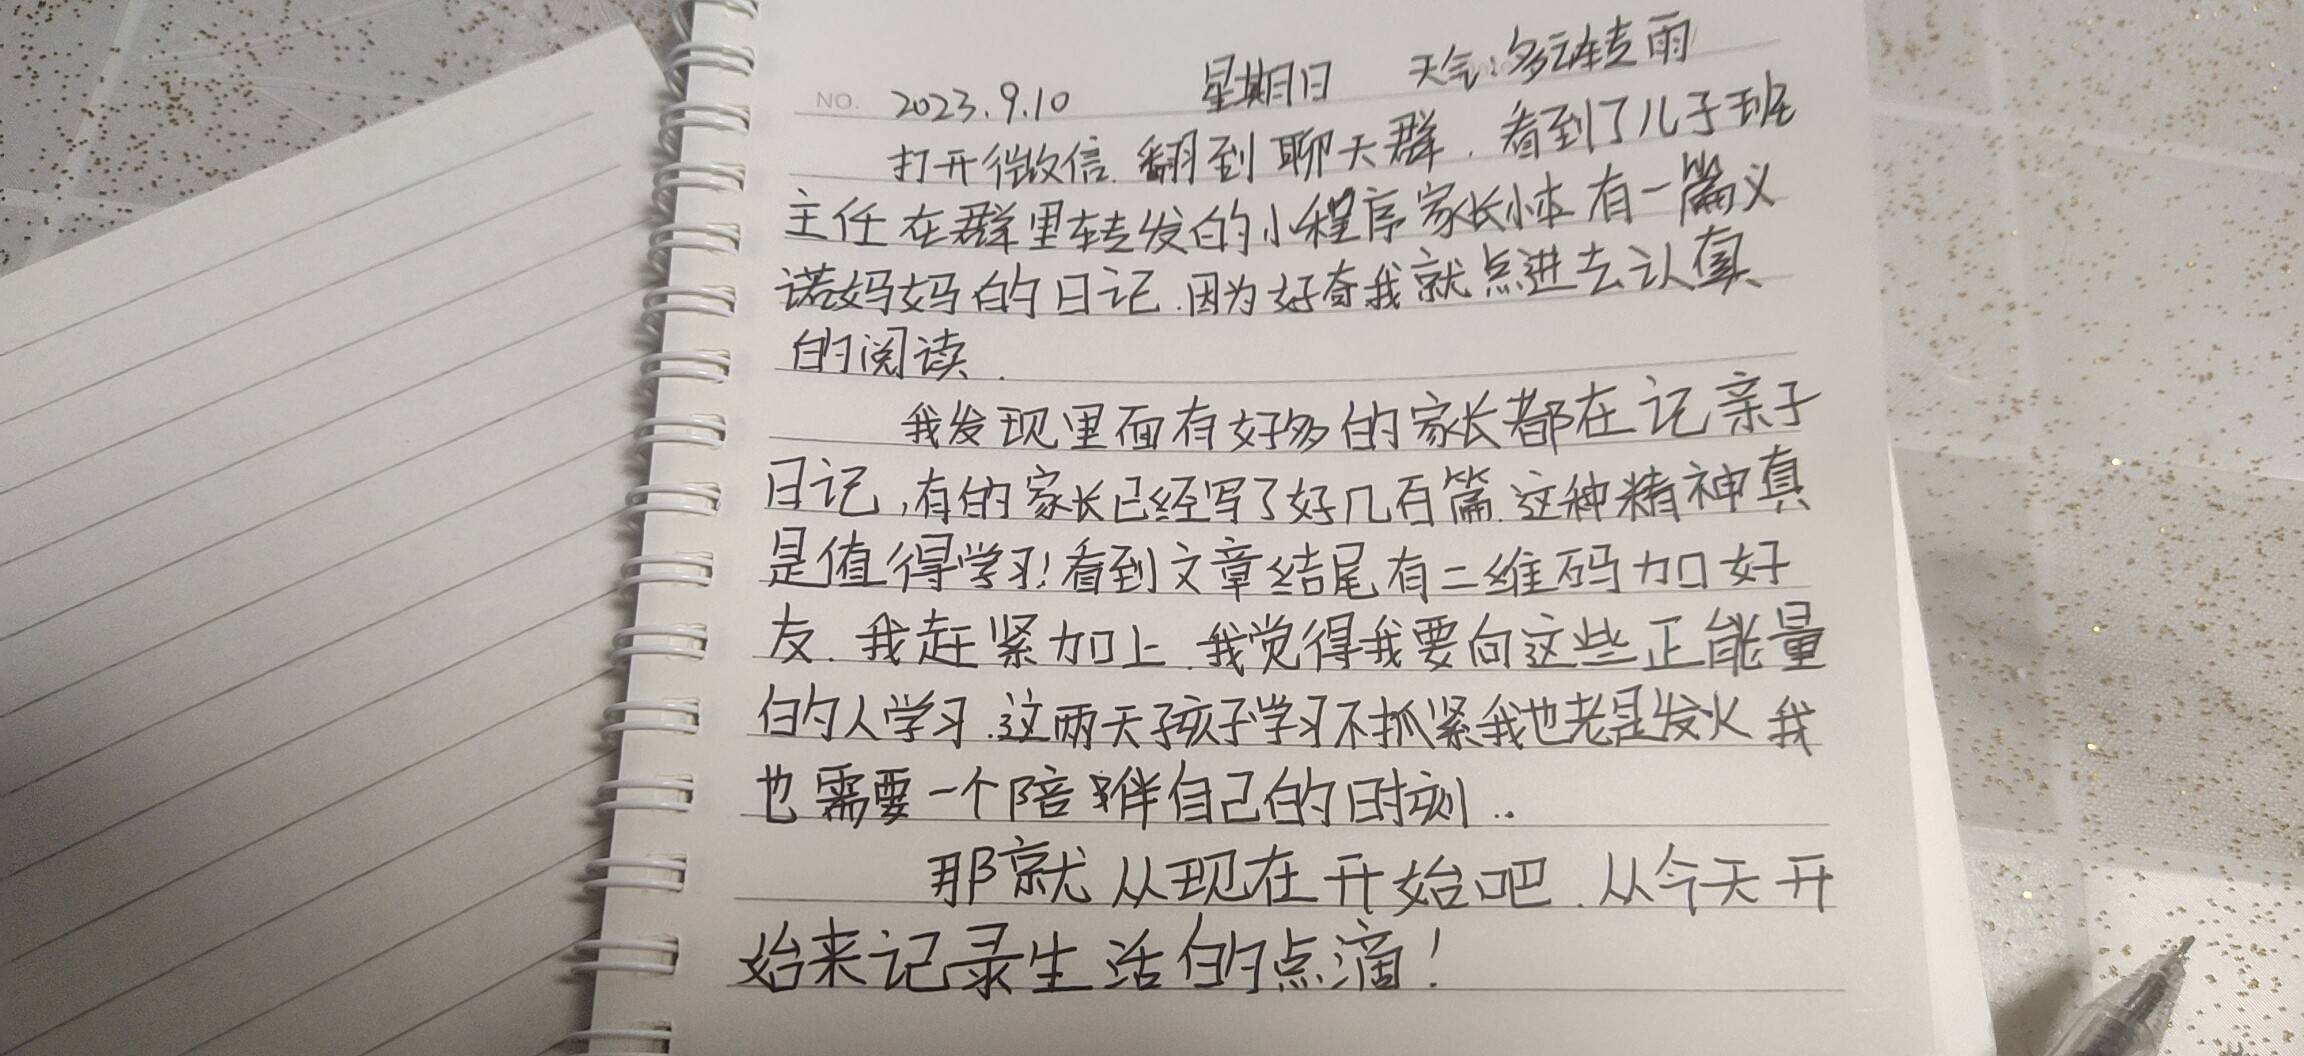 NO. 2023.9.10 星期日 天气:多云转雨
打开微信.翻到聊天群.看到了儿子班
主任在群里转发的小程序家长小本有一篇义
诺妈妈的日记.因为好奇我就点进去认真
的阅读.
我发现里面有好多的家长都在记亲子
日记,有的家长已经写了好几百篇.这种精神真
是值得学习!看到文章结尾有二维码加好
友.我赶紧加上.我觉得我要向这些正能量
的人学习.这两天孩子学习不抓紧我也老是发火我
也需要一个陪伴自己的时刻..
那就从现在开始吧.从今天开
始来记录生活的点滴!